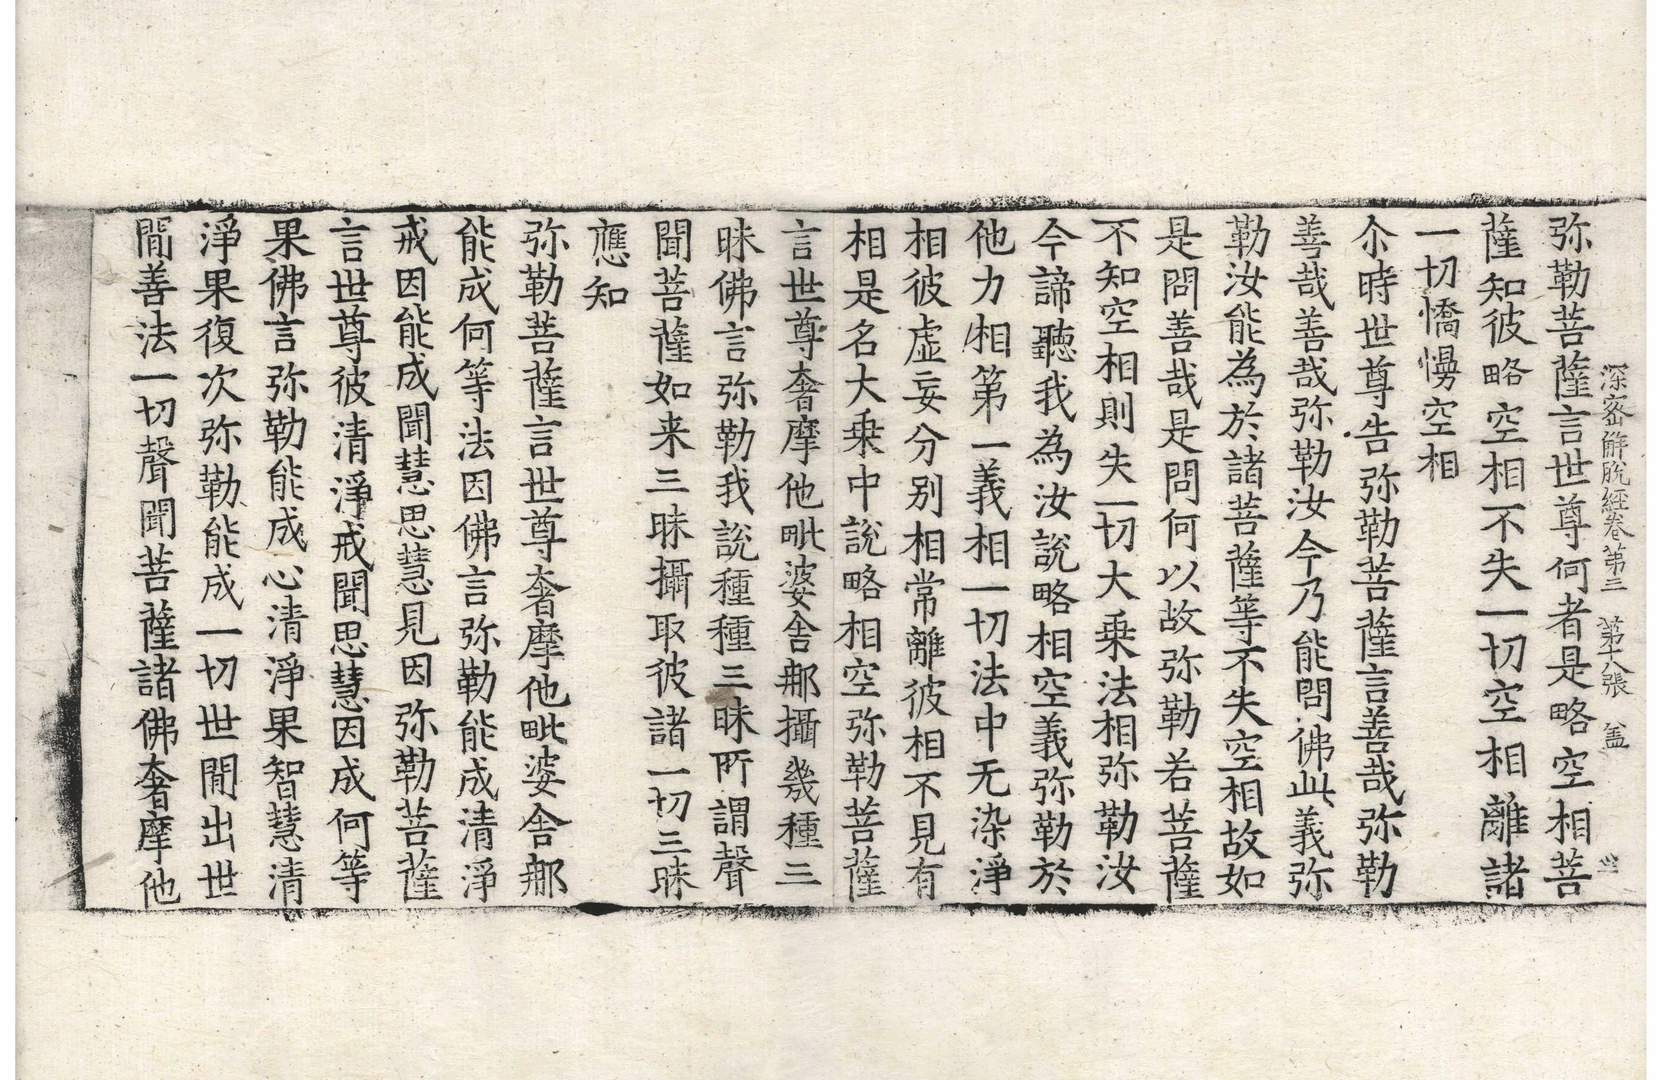 深密解脫經卷第三　第十八張　盖
弥勒菩薩言世尊何者是略空相菩
薩知彼略空相不失一切空相離諸
一切憍慢空相
尒時世尊告弥勒菩薩言善哉弥勒
善哉善哉弥勒汝今乃能問佛此義弥
勒汝能為於諸菩薩等不失空相故如
是問善哉是問何以故弥勒若菩薩
不知空相則失一切大乘法相弥勒汝
今諦聽我為汝說略相空義弥勒於
他力相第一義相一切法中无染淨
相彼虛妄分別相相常離彼相不見有
相是名大乘中說略相空弥勒菩薩
言世尊奢摩他毗婆舍那攝幾種三
昧佛言弥勒我說種種三昧所謂聲
聞菩薩如来三昧攝取彼諸一切三昧
應知
弥勒菩薩言世尊奢摩他毗婆舍那
能成何等法因佛言弥勒能成清淨
戒因能成聞慧思慧見因弥勒菩薩
言世尊彼清淨戒聞思慧因成何等
果佛言弥勒能成心清淨果智慧清
淨果復次弥勒能成一切世間出世
間善法一切聲聞菩薩諸佛奢摩他